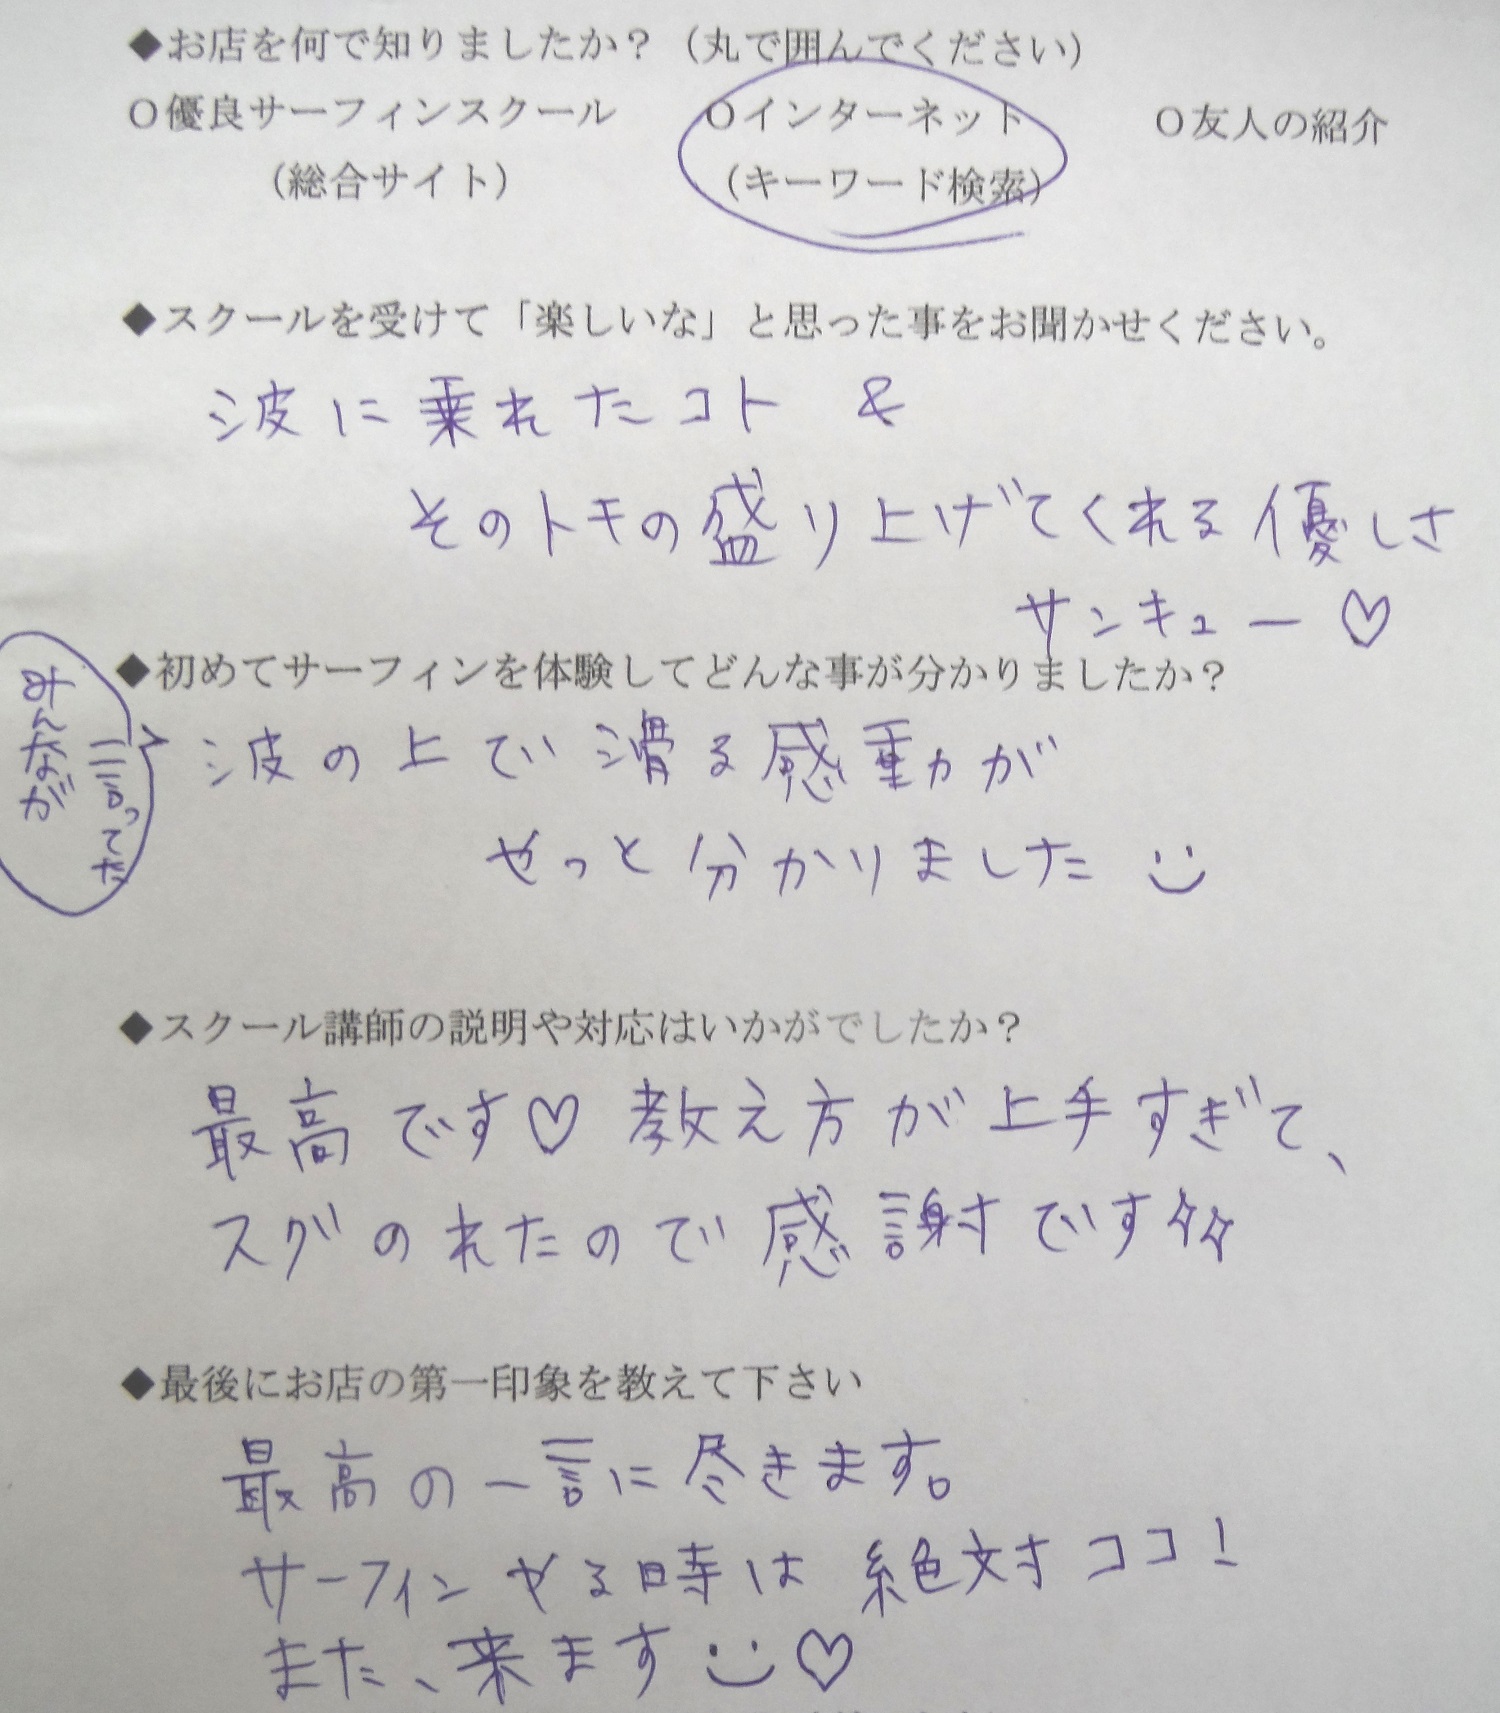 ◆お店を何で知りましたか？（丸で囲んでください）
○優良サーフィンスクール ○インターネット ○友人の紹介
（総合サイト） （キーワード検索）
◆スクールを受けて「楽しいな」と思った事をお聞かせください。
波に乗れたコト &
そのトキの盛り上げてくれる優しさ
サンキュー♡
◆初めてサーフィンを体験してどんな事が分かりましたか？
みんなが
言ってた
波の上で滑る感動が
やっと分かりました
◆スクール講師の説明や対応はいかがでしたか？
最高です♡教え方が上手すぎて、
スグのれたので感謝です
◆最後にお店の第一印象を教えて下さい
最高の一言に尽きます。
サーフィンやる時は絶対ココ！
また、来ます♡